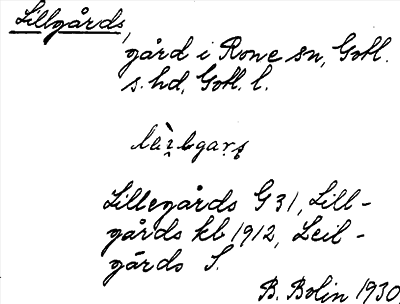 Lillgårds,
gård i Rone sn, Gotl.
s. hd, Gotl. l.
Lillegårds G 31, Lill-
gårds kl 1912, Leil-
gårds S.
B. Bolin 1930